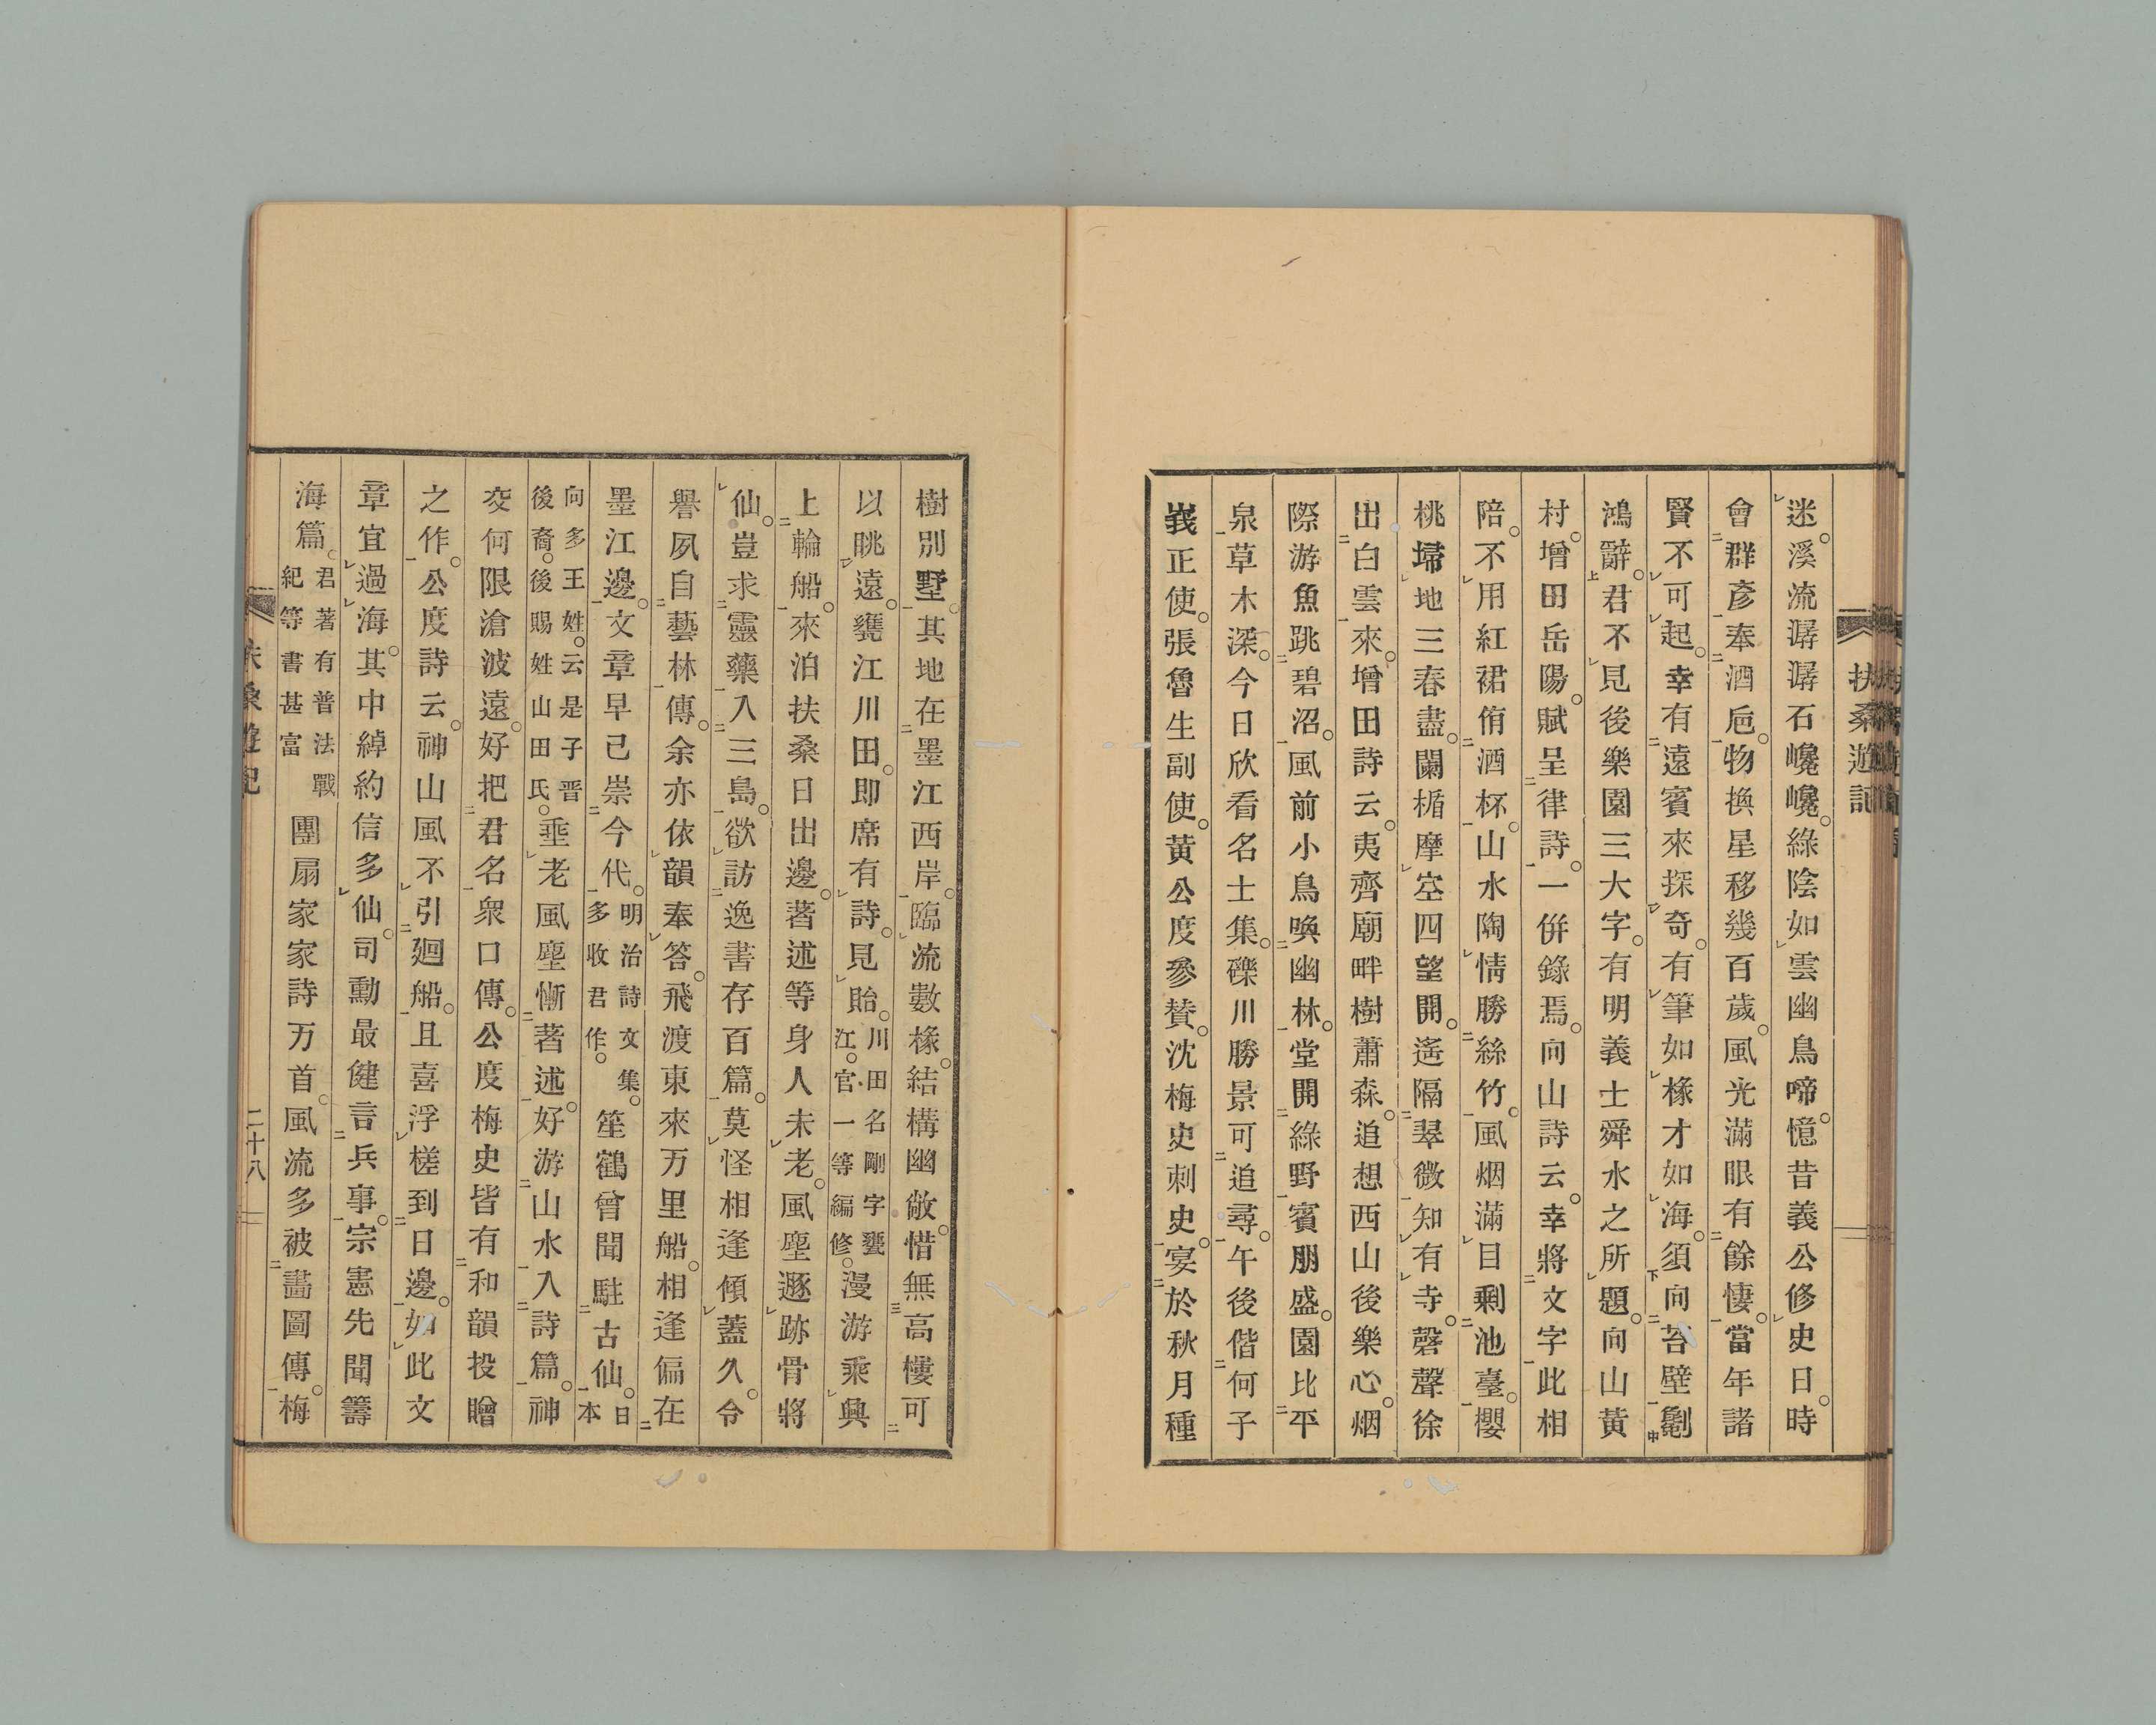 扶桑遊記
迷。溪流潺潺石巉巉。綠陰如雲幽鳥啼。憶昔義公修史日。時
會群彥奉酒巵。物換星移幾百歲。風光滿眼有餘悽。當年諸
賢不可起。幸有遠賓來探奇。有筆如椽才如海。須向苔壁劖
鴻辭。君不見後樂園三大字。有明義士舜水之所題。向山黃
村。增田岳陽。賦呈律詩。一併錄焉。向山詩云。幸將文字此相
陪。不用紅裙侑酒杯。山水陶情勝絲竹。風烟滿目剩池臺。櫻
桃掃地三春盡。闌楯摩空四望開。遙隔翠微知有寺。磬聲徐
出白雲來。增田詩云。夷齊廟畔樹蕭森。追想西山後樂心。烟
際游魚跳碧沼。風前小鳥喚幽林。堂開綠野賓朋盛。園比平
泉草木深。今日欣看名士集。礫川勝景可追尋。午後偕何子
峩正使。張魯生副使。黃公度參贊。沈梅史刺史。宴於秋月種
樹別墅。其地在墨江西岸。臨流數椽。結構幽敞。惜無高樓可
以眺遠。甕江川田。即席有詩。見貽。川田名剛字甕江。官一等編修。漫游乘興
上輪船。來泊扶桑日出邊。著述等身人未老。風塵遯跡骨將
仙。豈求靈藥入三島。欲訪逸書存百篇。莫怪相逢傾蓋久。令
譽夙自藝林傳。余亦依韻奉答。飛渡東來万里船。相逢偏在
墨江邊。文章早已崇今代。明治詩文集。多收君作。笙鶴曾聞駐古仙。日本
向多王姓。云是子晋後裔。後賜姓山田氏。垂老風塵慚著述。好游山水入詩篇。神
交何限滄波遠。好把君名衆口傳。公度梅史皆有和韻投贈
之作。公度詩云。神山風不引廻船。且喜浮槎到日邊。如此文
章宜過海。其中綽約信多仙。司勳最健言兵事。宗憲先聞籌
海篇。君著有普法戰紀等書甚富 團扇家家詩万首。風流多被畵圖傳。梅
扶桑遊記
二十八